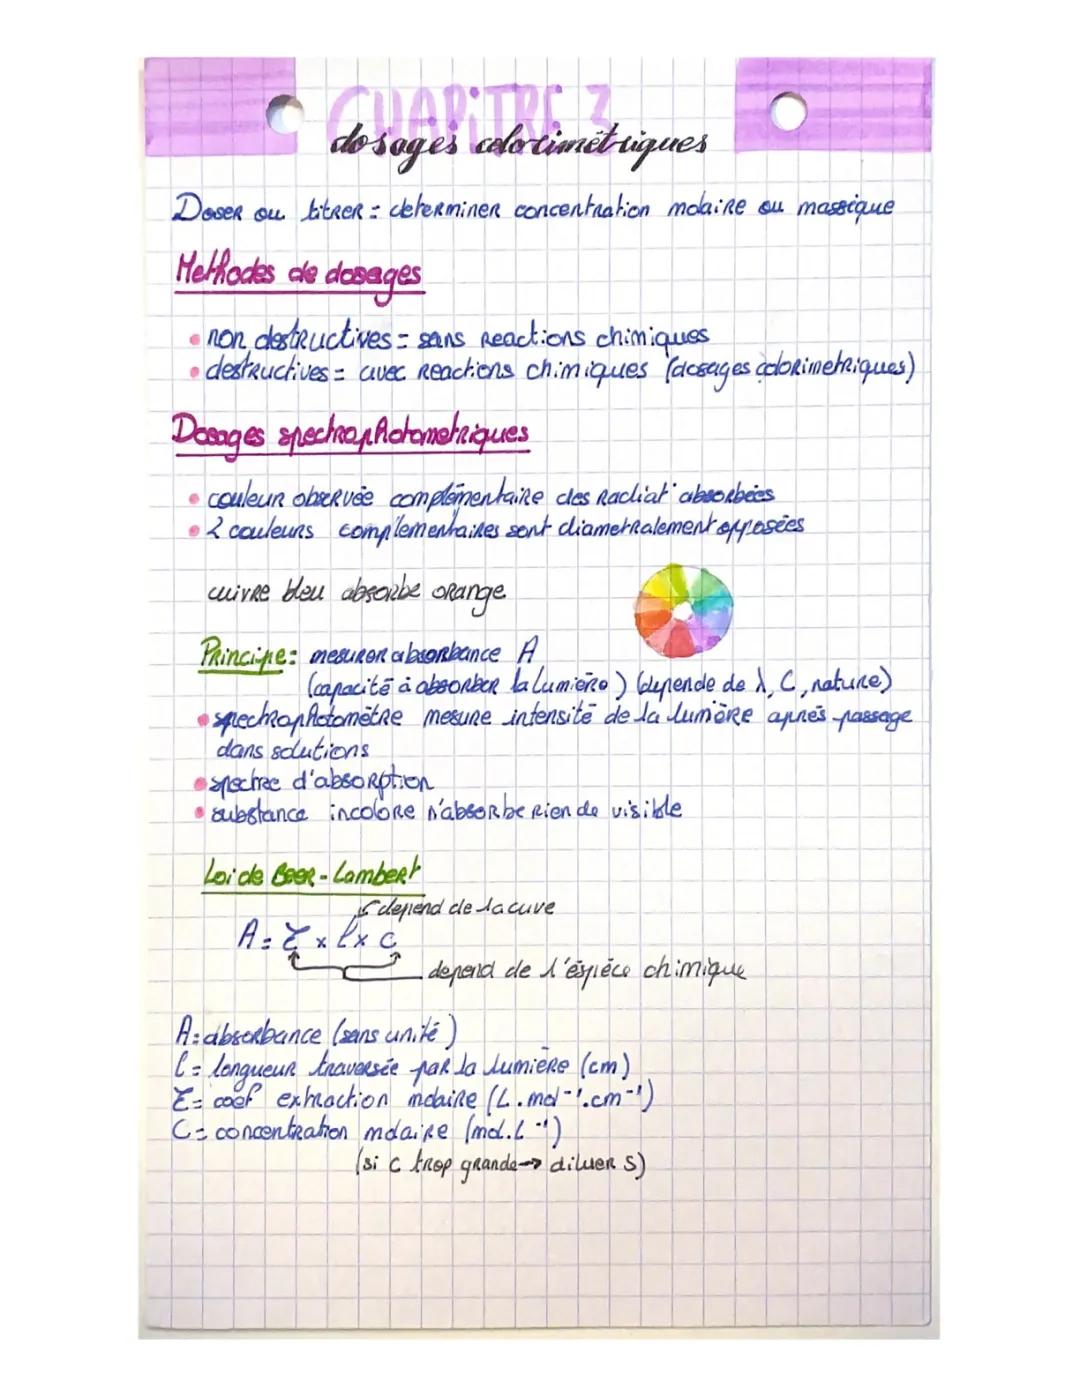 CHAPITRE 3
dosages colorimétriques
Doser ou titrer = determiner concentration molaire ou massique
Methodes de dosages
• non destructives = sans reactions chimiques
• destructives = avec reactions chimiques (dosages colorimetriques)
Dosages spectrophotometriques
• couleur observée complémentaire des radiat° absorbées
• 2 couleurs complementaires sont diametralement opposées
cuivre bleu absorbe orange
Principe: mesurer absorbance A
(capacité à absorber la lumière) (depende de λ, C, nature)
• spectrophotomètre mesure intensité de la lumière après passage
dans solutions
• spectre d'absorption
• substance incolore n'absorbe rien de visible
Loi de Beer-Lambert
depend de la cuve
A = Ɛ x l x c
depend de l'éspièce chimique
A: absorbance (sans unité)
l = longueur traversée par la lumière (cm)
Ɛ = coef extraction molaire (L.mol⁻¹.cm⁻¹)
C = concentration molaire (mol.L⁻¹)
(si c trop grande → diluer S)